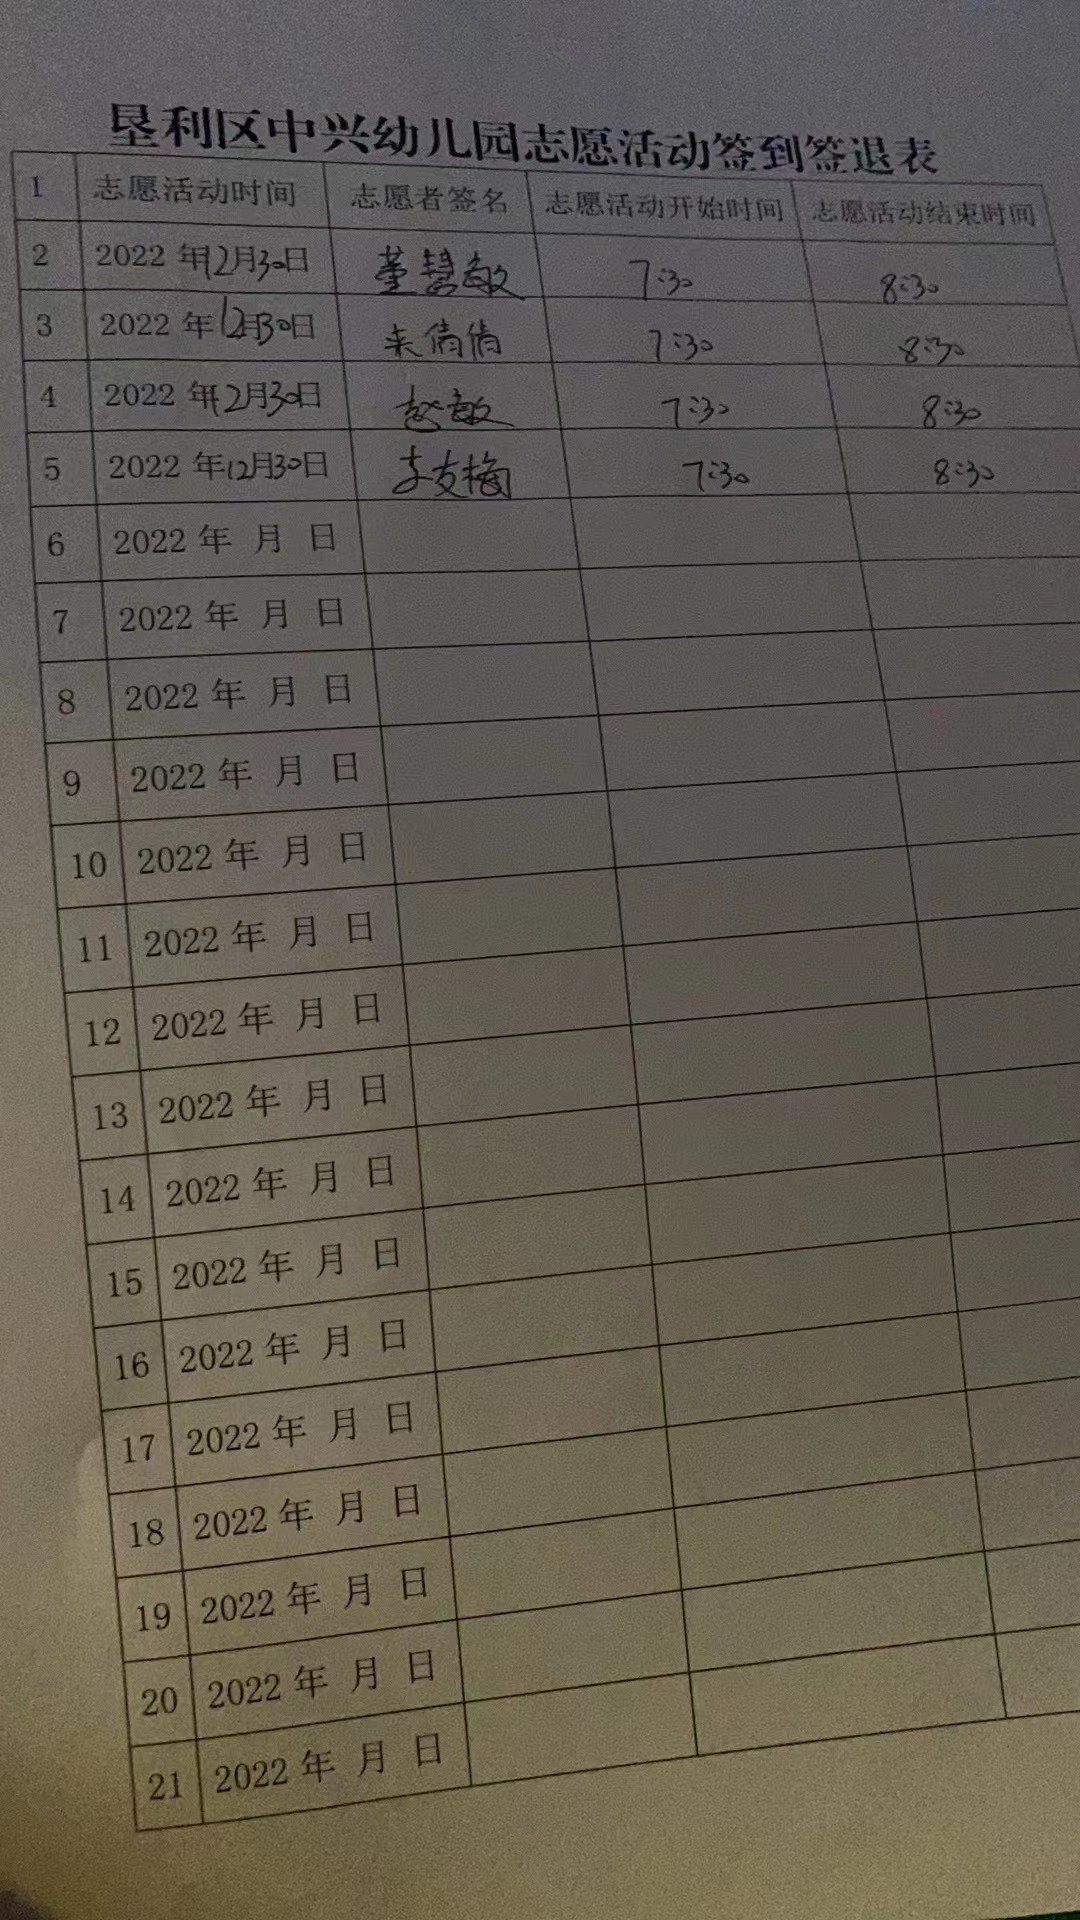 垦利区中兴幼儿园志愿活动签到签退表
1 志愿活动时间 志愿者签名 志愿活动开始时间 志愿活动结束时间
2 2022 年12月30日 董慧敏 7:30 8:30
3 2022 年12月30日 来倩倩 7:30 8:30
4 2022 年12月30日 赵敏 7:30 8:30
5 2022 年12月30日 李友梅 7:30 8:30
6 2022 年 月 日
7 2022 年 月 日
8 2022 年 月 日
9 2022 年 月 日
10 2022 年 月 日
11 2022 年 月 日
12 2022 年 月 日
13 2022 年 月 日
14 2022 年 月 日
15 2022 年 月 日
16 2022 年 月 日
17 2022 年 月 日
18 2022 年 月 日
19 2022 年 月 日
20 2022 年 月 日
21 2022 年 月 日